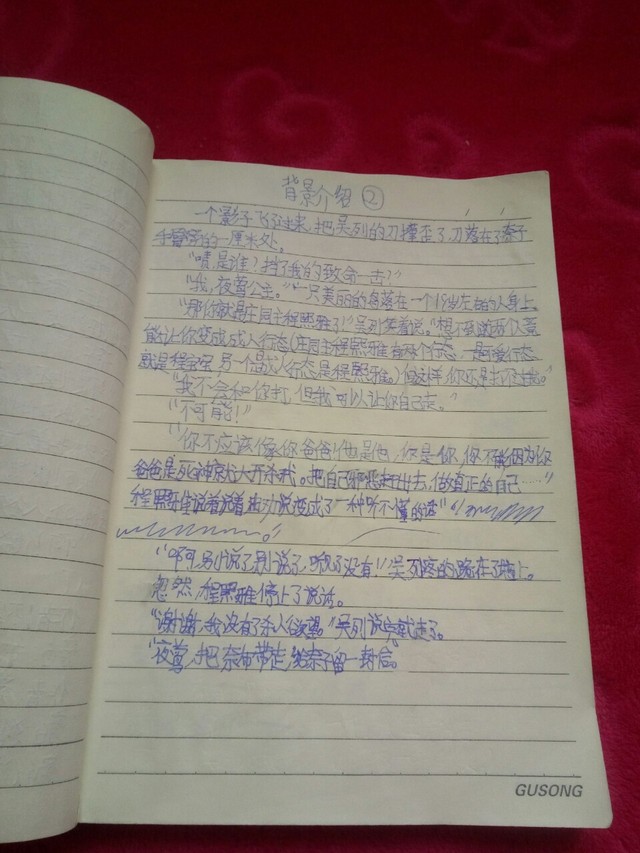 背景介绍②
一个影子飞过来,把吴列的刀撞歪了,刀落在了奈子
手的一厘米处。
“嘻,是谁?挡了我的致命一击?”
“我,夜莺公主。”一只美丽的落在一个19岁左右的人身上。
“那你就是庄园主程熙雅了!”吴列笑着说。“想不到两个竟
能让你变成成人行态(庄园主程熙雅有两个行态,一是行态
就是程宝宝,另一个是成人行态是程熙雅。)但这样,你还是打不过我。”
“我不会和你打,但我可以让你自己走。”
“不可能!”
“你不应该像你爸爸!他是他,你是你,你不能因为你
爸爸是死神就大开杀戒。把自己邪恶赶出去,做真正的自己……”
程熙雅说着说着说变成了一种听不懂的语”
“啊,别说了,别说了,听见了没有!”吴列疼的跪在了地上。
忽然,程熙雅停止了说话。
“谢谢,我没有了杀人欲望”吴列说完就走了。
“夜莺,把奈布带走,给奈子留一封信。”
GUSONG